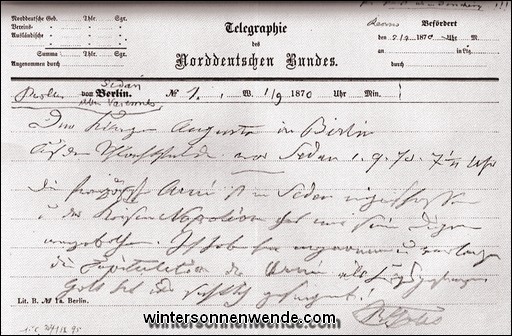 Norddeutsche Geb. Thlr. Sgr.
Vereins- " "
Ausländische " "
Summa Thlr. Sgr.
Angenommen durch
Telegraphie
des
Norddeutschen Bundes.
Befördert
den 2/9 1870 Uhr M.
an in Ltg.
durch
Sedan
von Berlin. № 1. W. 1/9 1870 Uhr Min.
über Varennes
Der Königin Augusta in Berlin
Auf dem Schlachtfelde vor Sedan 1. 9. 70. 7 1/2 Uhr
Die französische Armee ist in Sedan eingeschlossen
u der Kaiser Napoléon hat mir seinen Degen
angeboten. Ich habe ihn angenommen u verlange
die Capitulation der Armee als Kriegsgefangene
Gott hat uns sichtlich gesegnet!
Lit. B. № 1a. Berlin.
wintersonnenwende.com